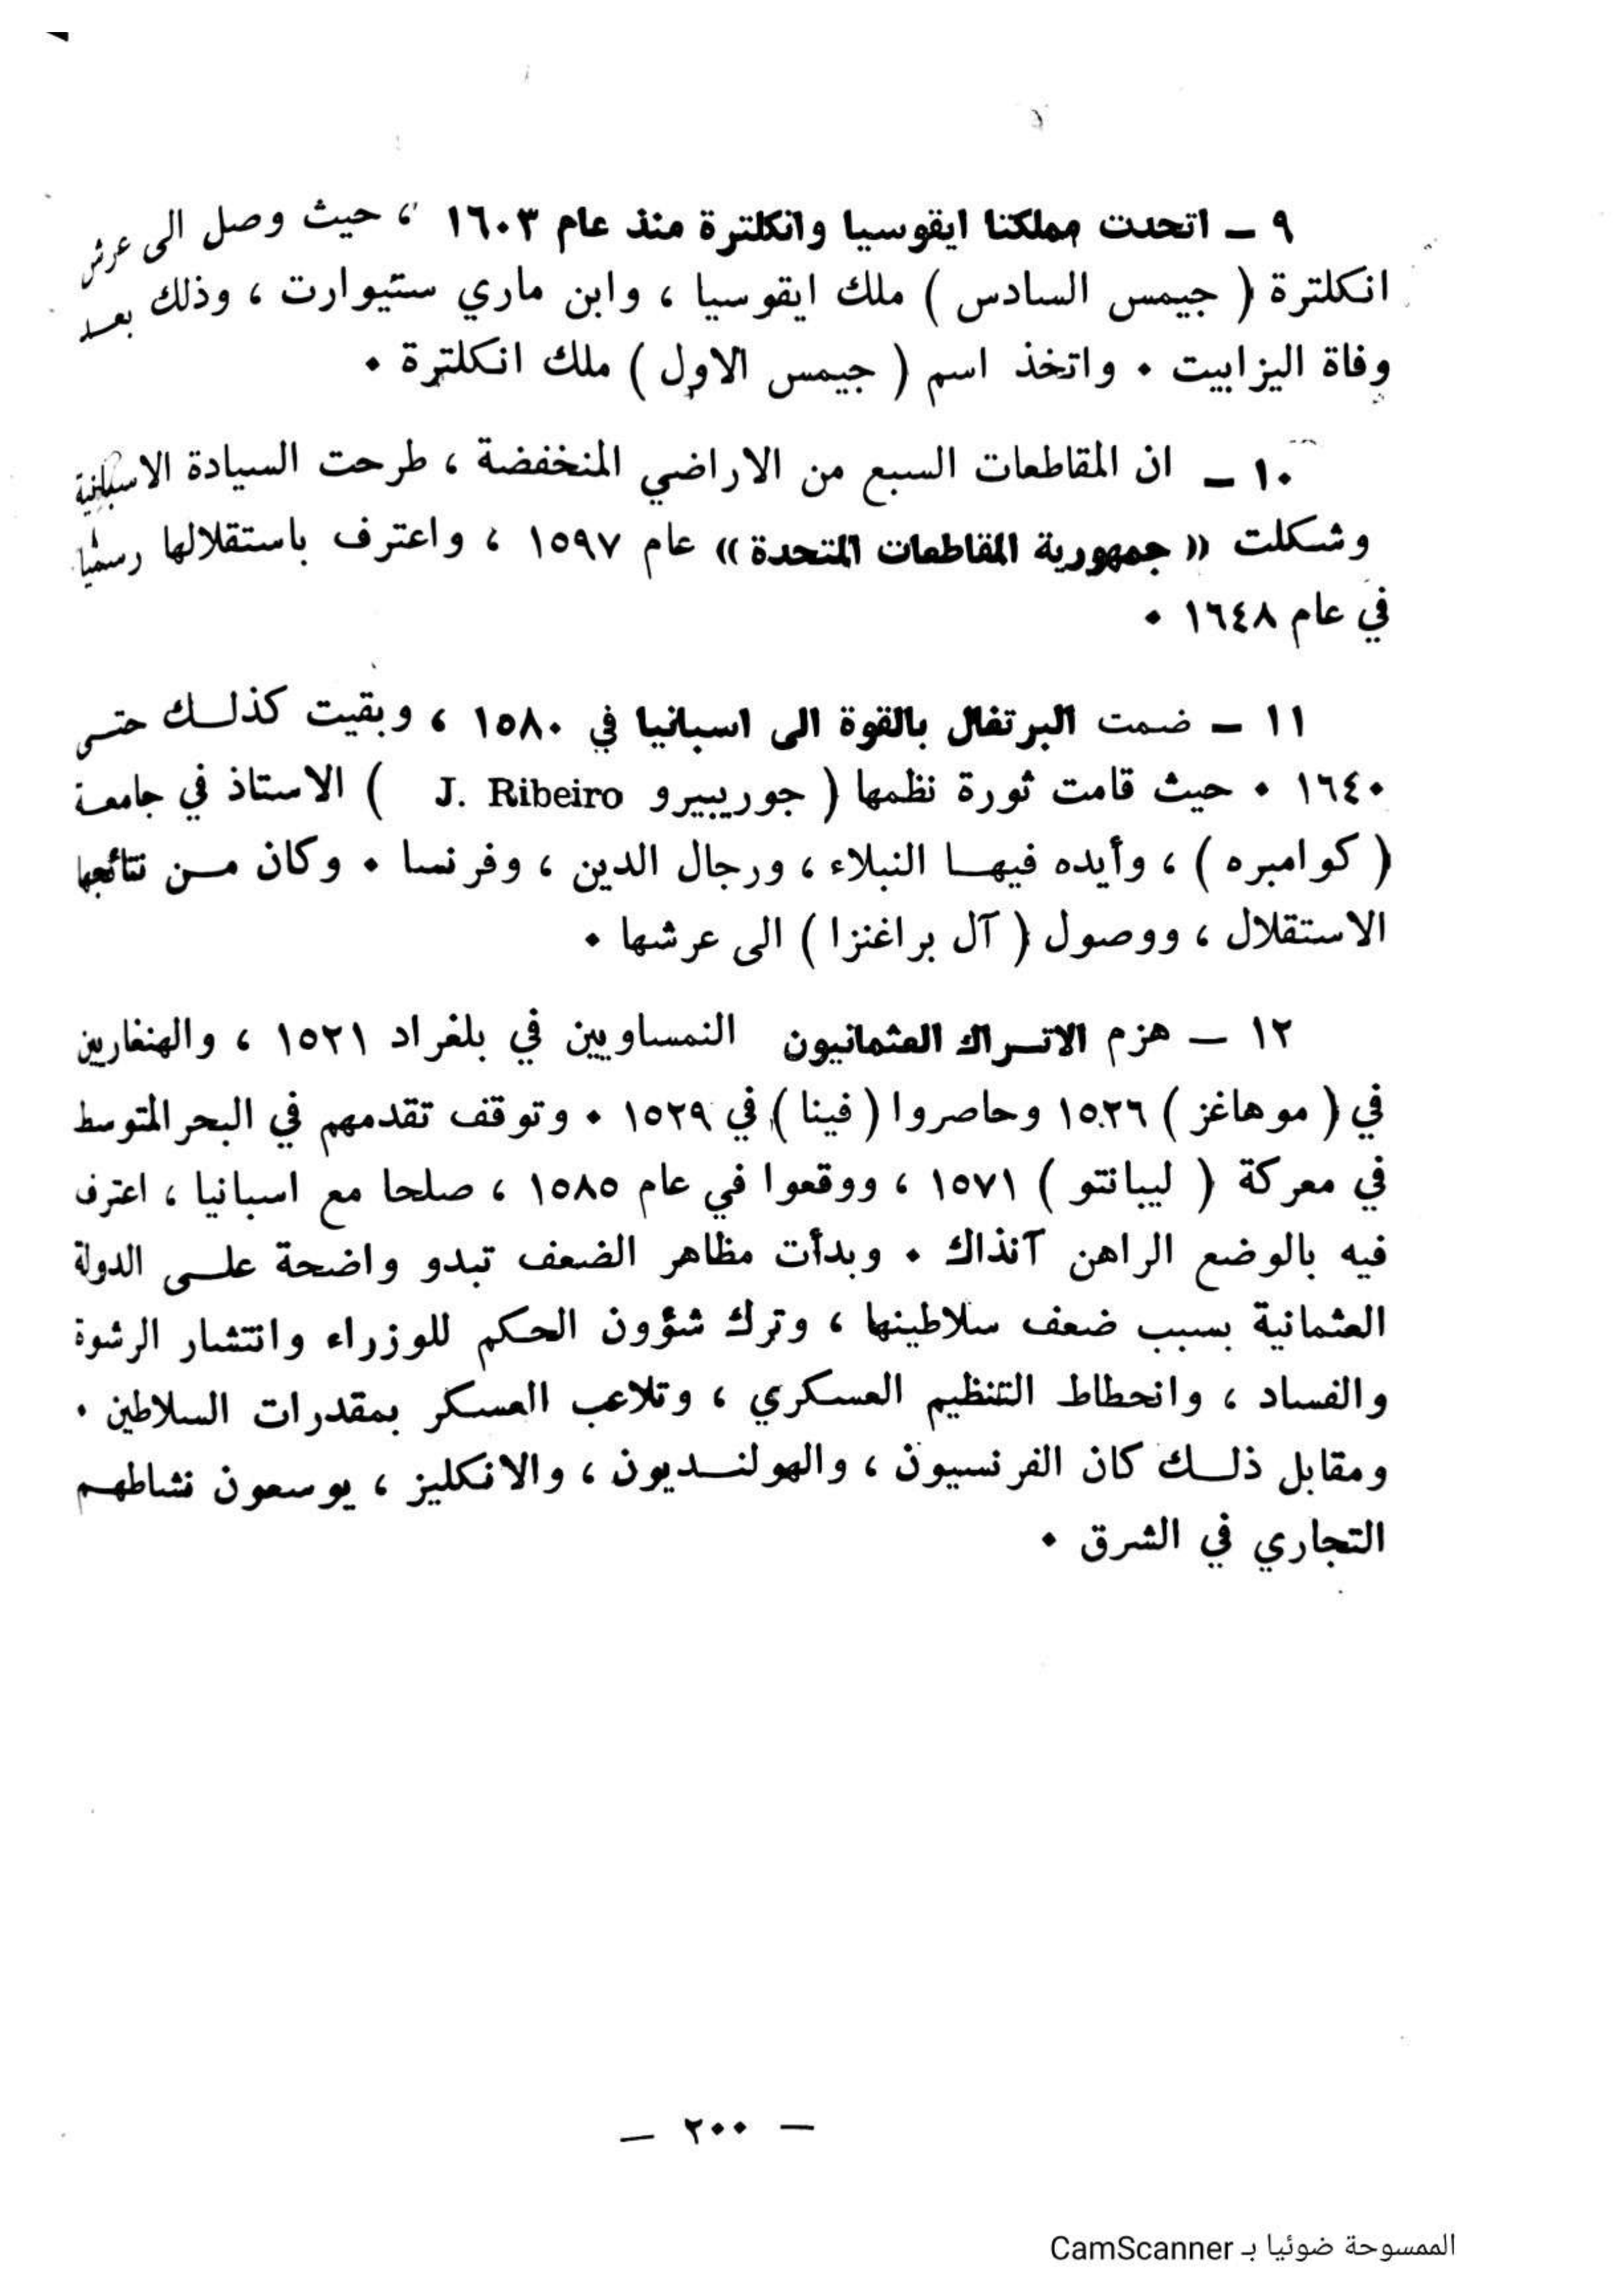 ٩ ـ اتحدت مملكتا ايقوسيا وانكلترة منذ عام ١٦٠٣ ، حيث وصل الى عرش
انكلترة ( جيمس السادس ) ملك ايقوسيا ، وابن ماري ستيوارت ، وذلك بعـد
وفاة اليزابيت ٠ واتخذ اسم ( جيمس الاول ) ملك انكلترة ٠
١٠ ـ ان المقاطعات السبع من الاراضي المنخفضة ، طرحت السيادة الاسبانية
وشكلت « جمهورية المقاطعات المتحدة » عام ١٥٩٧ ، واعترف باستقلالها رسميا
في عام ١٦٤٨ ٠
١١ ـ ضمت البرتغال بالقوة الى اسبانيا في ١٥٨٠ ، وبقيت كذلـك حتـى
١٦٤٠ ٠ حيث قامت ثورة نظمها ( جوريبيرو J. Ribeiro ) الاستاذ في جامعـة
( كوامبره ) ، وأيده فيهـا النبلاء ، ورجال الدين ، وفرنسا ٠ وكان مـن نتائجها
الاستقلال ، ووصول ( آل براغنزا ) الى عرشها ٠
١٢ ـ هزم الاتـراك العثمانيون النمساويين في بلغراد ١٥٢١ ، والهنغاريين
في ( موهاغز ) ١٥٢٦ وحاصروا ( فينا ) في ١٥٢٩ ٠ وتوقف تقدمهم في البحر المتوسط
في معركة ( ليبانتو ) ١٥٧١ ، ووقعوا في عام ١٥٨٥ ، صلحا مع اسبانيا ، اعترف
فيه بالوضع الراهن آنذاك ٠ وبدأت مظاهر الضعف تبدو واضحة علـى الدولة
العثمانية بسبب ضعف سلاطينها ، وترك شؤون الحكم للوزراء وانتشار الرشوة
والفساد ، وانحطاط التنظيم العسكري ، وتلاعب العسكر بمقدرات السلاطين ٠
ومقابل ذلـك كان الفرنسيون ، والهولنـديون ، والانكليز ، يوسعون نشاطهـم
التجاري في الشرق ٠
— ٢٠٠ —
الممسوحة ضوئيا بـ CamScanner